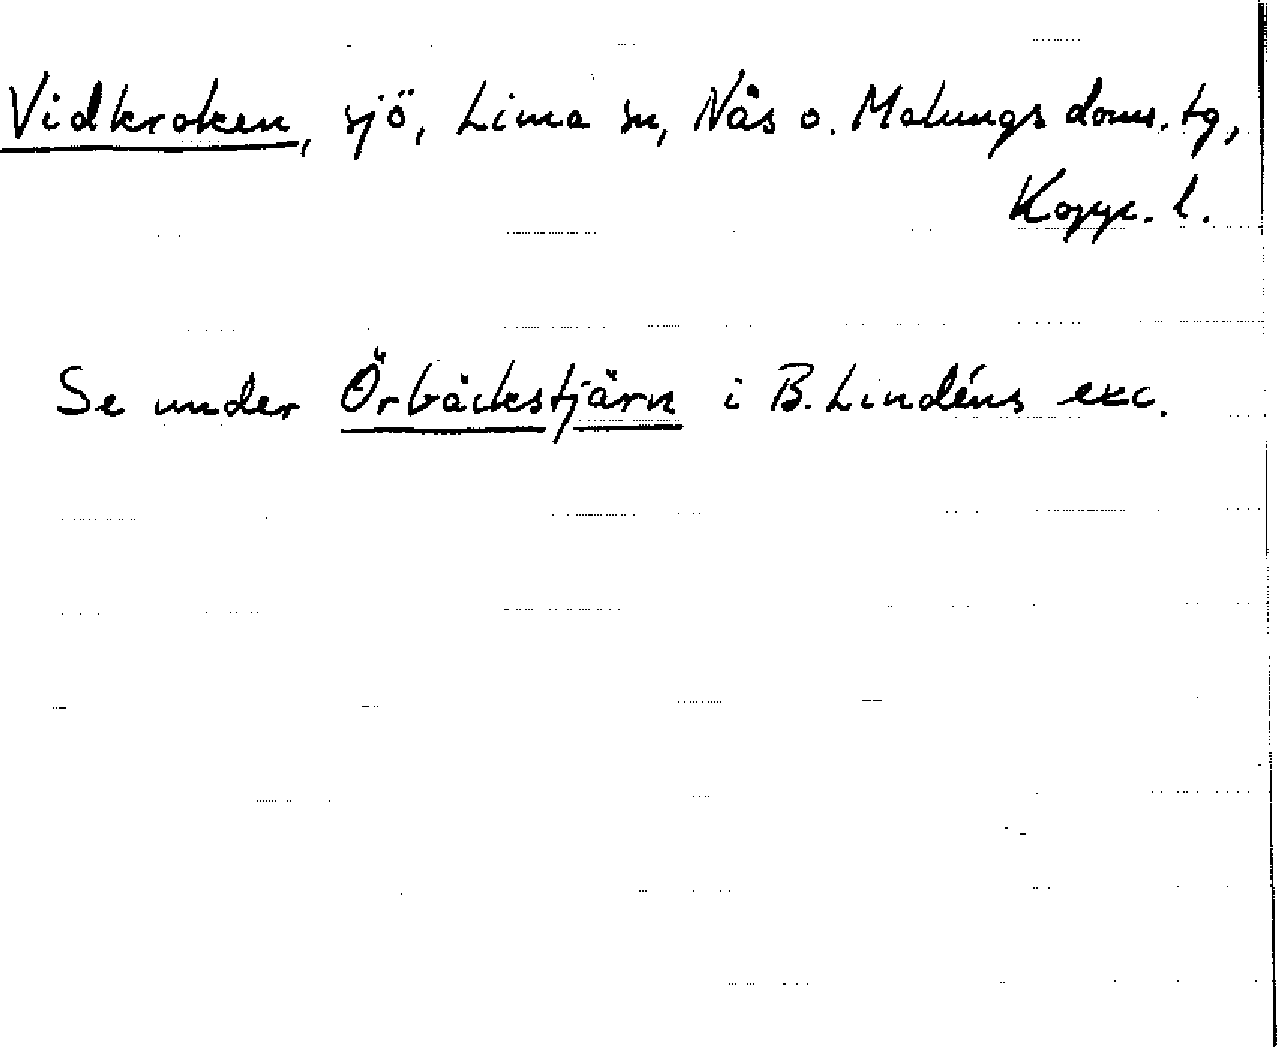 Vidkroken, sjö, Lima sn, Nås o. Malungs doms. tg,
Kopp. l.
Se under Örbäckstjärn i B. Lindéns exc.